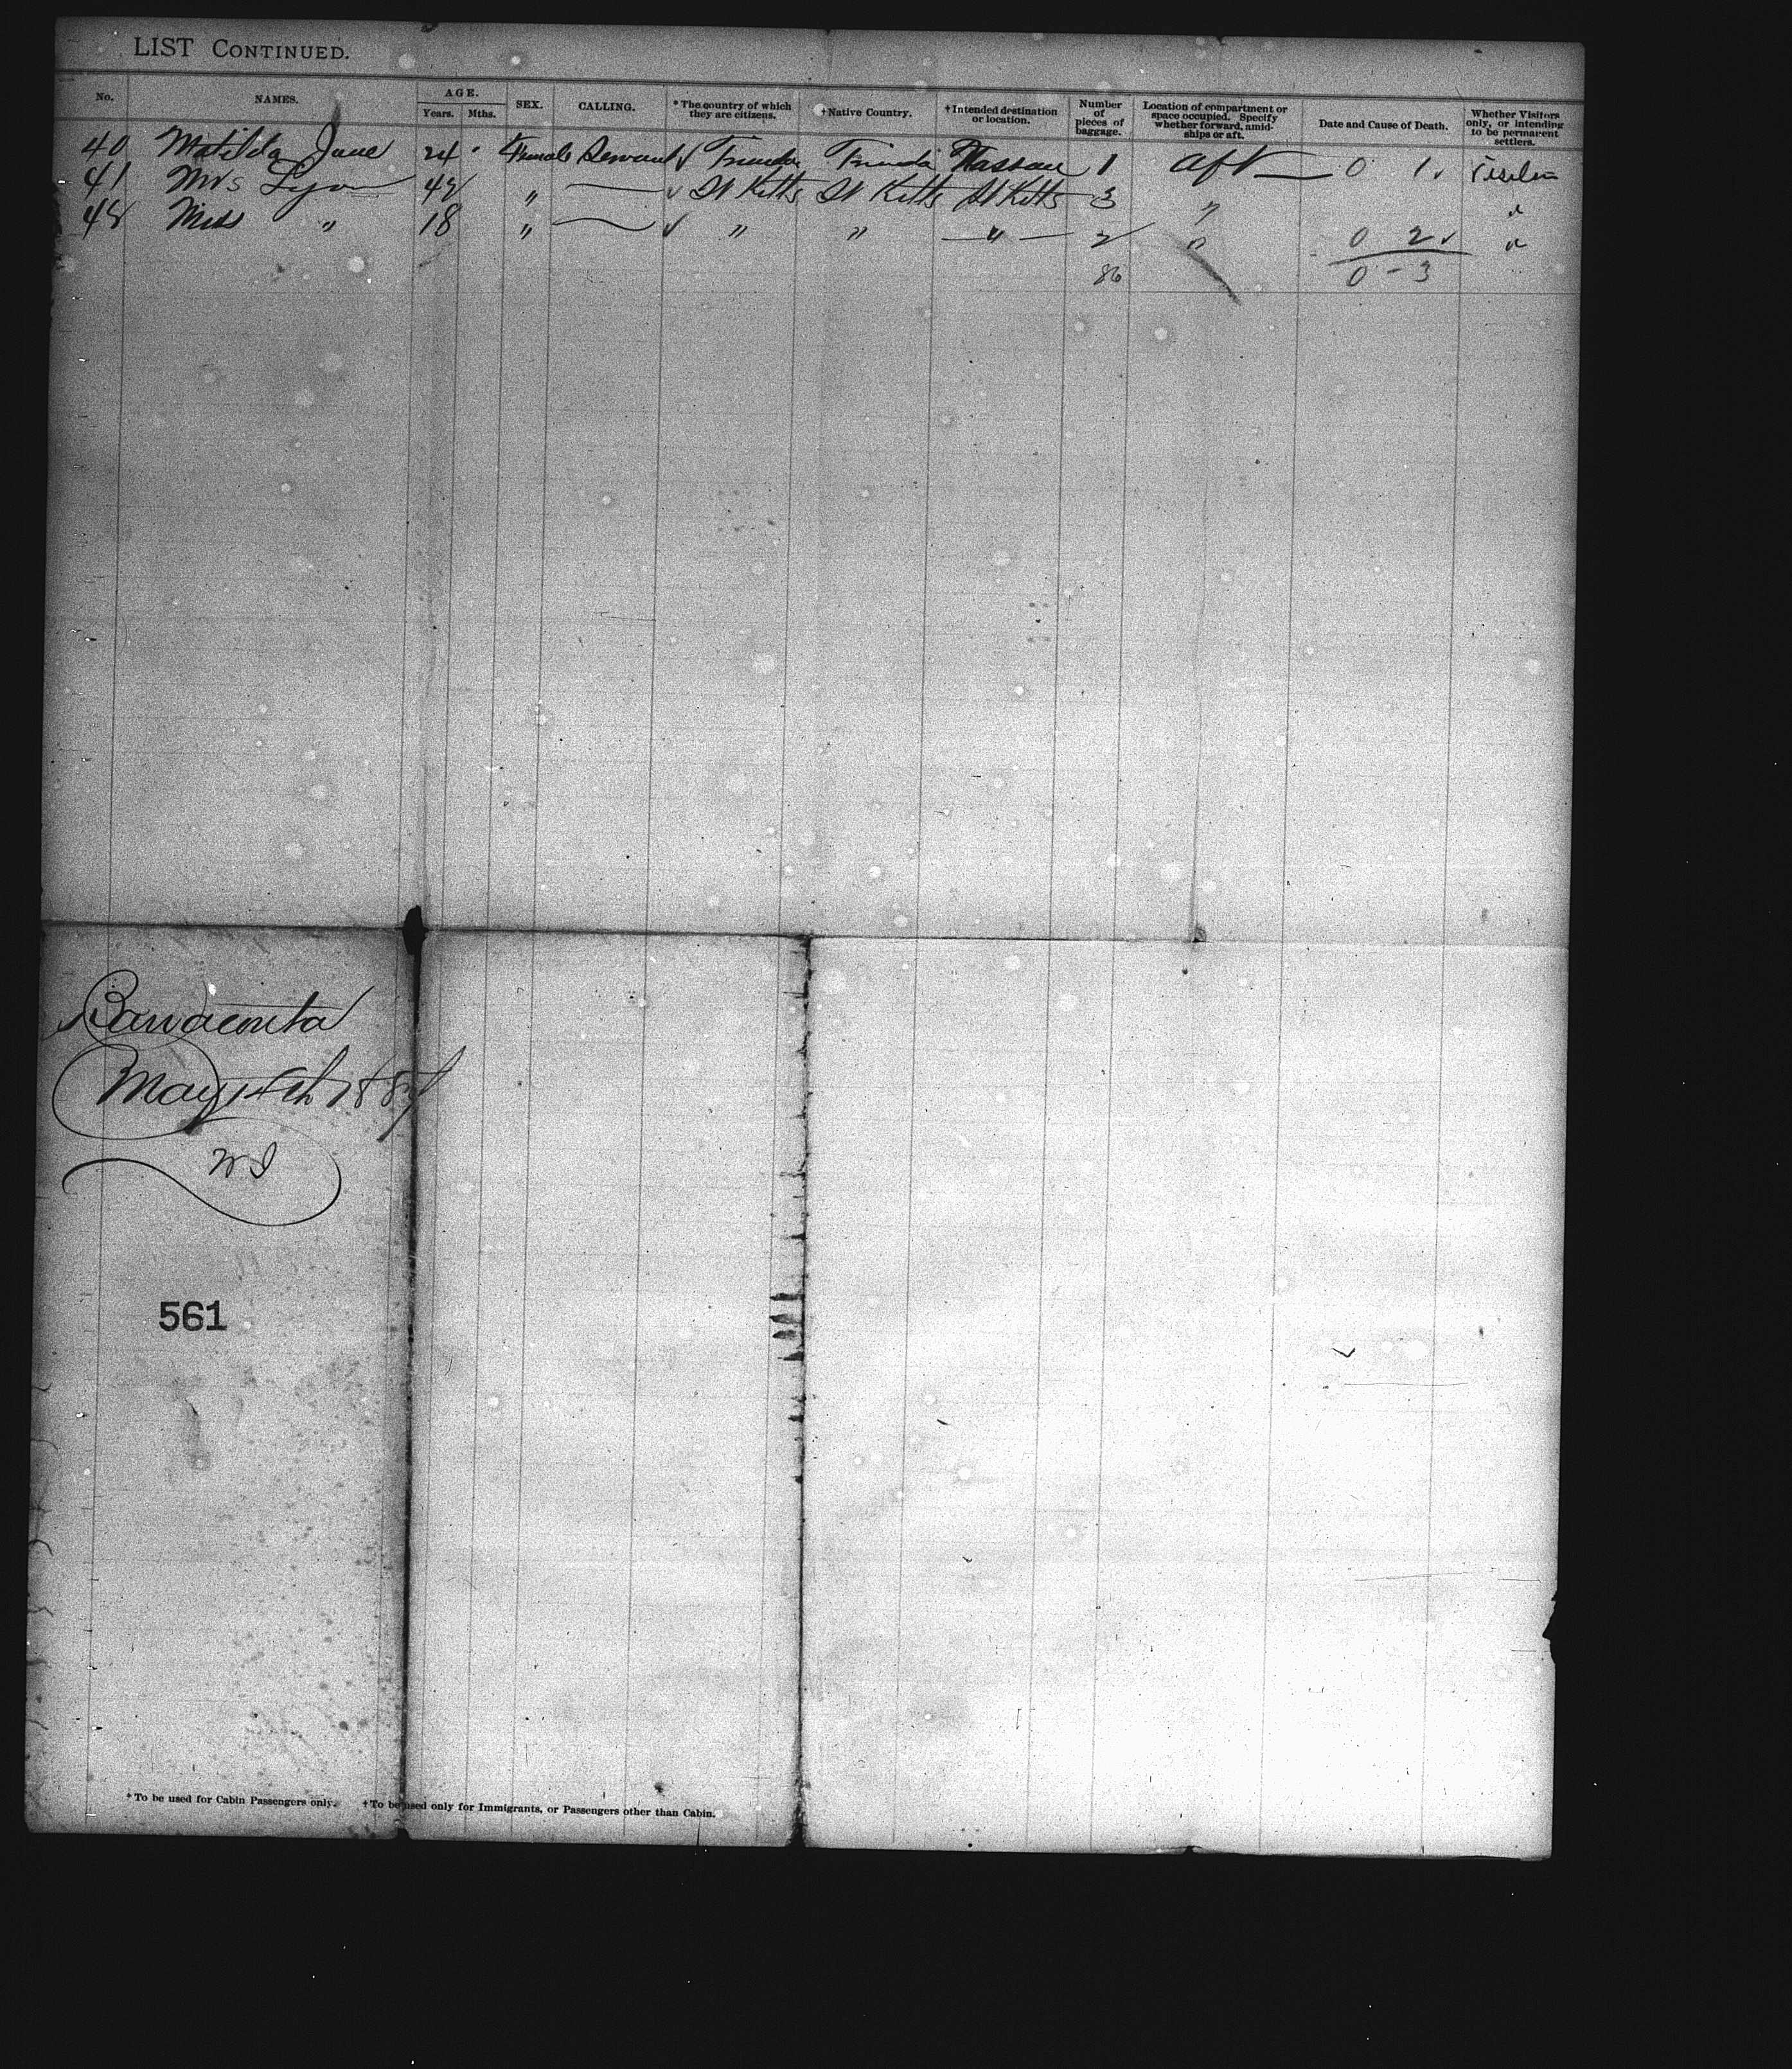 LIST CONTINUED.
No. NAMES. AGE. Years. Mths. SEX. CALLING. * The country of which they are citizens. † Native Country. † Intended destination or location. Number of pieces of baggage. Location of compartment or space occupied. Specify whether forward, amidships or aft. Date and Cause of Death. Whether Visitors only, or intending to be permanent settlers.
40 Matilda Jane 24 Female Servant √ Trinda Trinda Nassau 1 aft 0 1
41 Mrs Lyon " √ St Kitts St Kitts St Kitts 3 "
Miss " 18 " √ " " " 2 " 0 2 √ "
86 0 - 3
Barracouta
May 14th 1887
W I
561
* To be used for Cabin Passengers only. † To be used only for Immigrants, or Passengers other than Cabin.